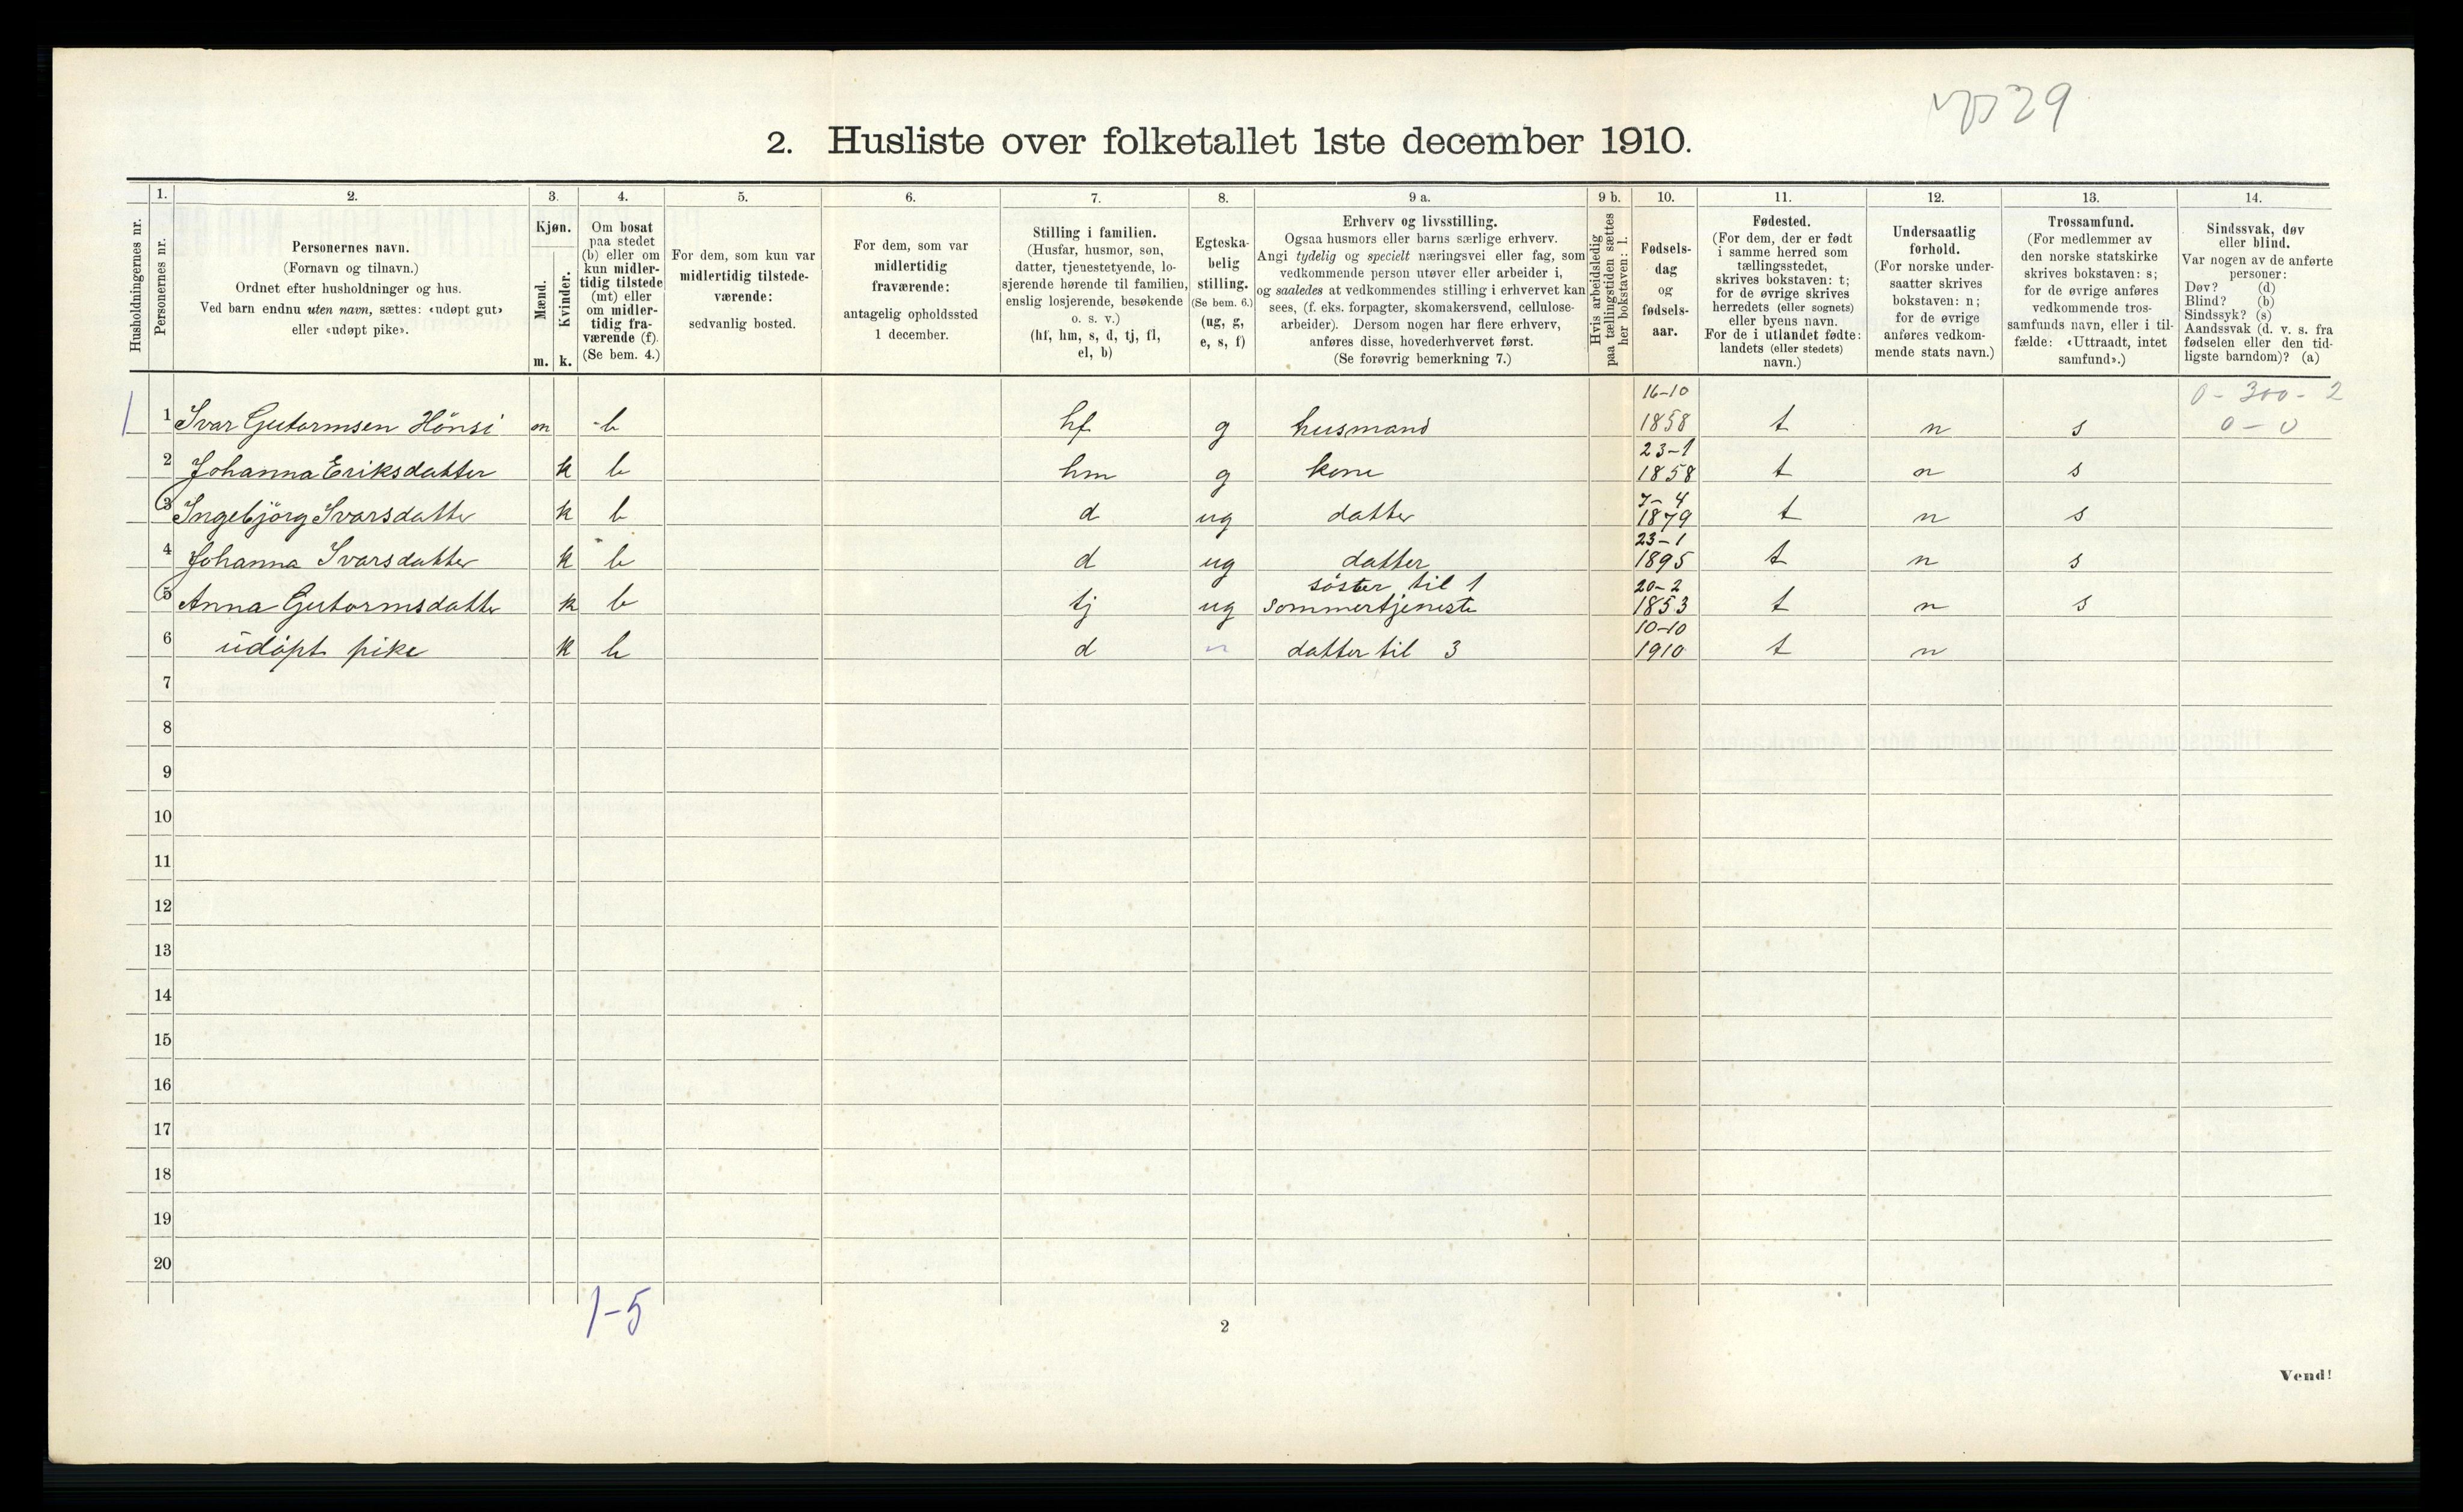 2. Husliste over folketallet 1ste december 1910.
29
Husholdningernes nr.
1.
Personernes nr.
2.
Personernes navn.
(Fornavn og tilnavn.)
Ordnet efter husholdninger og hus.
Ved barn endnu uten navn, sættes: «udøpt gut»
eller «udøpt pike».
3.
Kjøn.
Mænd.
Kvinder.
m. k.
4.
Om bosat
paa stedet
(b) eller om
kun midler-
tidig tilstede
(mt) eller
om midler-
tidig fra-
værende (f).
(Se bem. 4.)
5.
For dem, som kun var
midlertidig tilstede-
værende:
sedvanlig bosted.
6.
For dem, som var
midlertidig
fraværende:
antagelig opholdssted
1 december.
7.
Stilling i familien.
(Husfar, husmor, søn,
datter, tjenestetyende, lo-
sjerende hørende til familien,
enslig losjerende, besøkende
o. s. v.)
(hf, hm, s, d, tj, fl,
el, b)
8.
Egteska-
belig
stilling.
(Se bem. 6.)
(ug, g,
e, s, f)
9 a.
Erhverv og livsstilling.
Ogsaa husmors eller barns særlige erhverv.
Angi tydelig og specielt næringsvei eller fag, som
vedkommende person utøver eller arbeider i,
og saaledes at vedkommendes stilling i erhvervet kan
sees, (f. eks. forpagter, skomakersvend, cellulose-
arbeider). Dersom nogen har flere erhverv,
anføres disse, hovederhvervet først.
(Se forøvrig bemerkning 7.)
9 b.
Hvis arbeidsledig
paa tællingstiden sættes
her bokstaven: l.
10.
Fødsels-
dag
og
fødsels-
aar.
11.
Fødested.
(For dem, der er født
i samme herred som
tællingsstedet,
skrives bokstaven: t;
for de øvrige skrives
herredets (eller sognets)
eller byens navn.
For de i utlandet fødte:
landets (eller stedets)
navn.)
12.
Undersaatlig
forhold.
(For norske under-
saatter skrives
bokstaven: n;
for de øvrige
anføres vedkom-
mende stats navn.)
13.
Trossamfund.
(For medlemmer av
den norske statskirke
skrives bokstaven: s;
for de øvrige anføres
vedkommende tros-
samfunds navn, eller i til-
fælde: «Uttraadt, intet
samfund».)
14.
Sindssvak, døv
eller blind.
Var nogen av de anførte
personer:
Døv? (d)
Blind? (b)
Sindssyk? (s)
Aandssvak (d. v. s. fra
fødselen eller den tid-
ligste barndom)? (a)
16-10 0-300-2
1 1 Ivar Gutormsen Hönsi m b hf g husmand 1858 t n s 0-0
23-1
2 Johanna Eriksdatter k b hm g kone 1858 t n s
7-4
3 Ingebjörg Ivarsdatter k b d ug datter 1879 t n s
23-1
4 Johanna Ivarsdatter k b d ug datter 1895 t n s
søster til 1 20-2
5 Anna Gutormsdatter k b tj ug sommertjeneste 1853 t n s
10-10
6 udøpt pike k b d datter til 3 1910 t n
7
8
9
10
11
12
13
14
15
16
17
18
19
20
1-5
2
Vend!